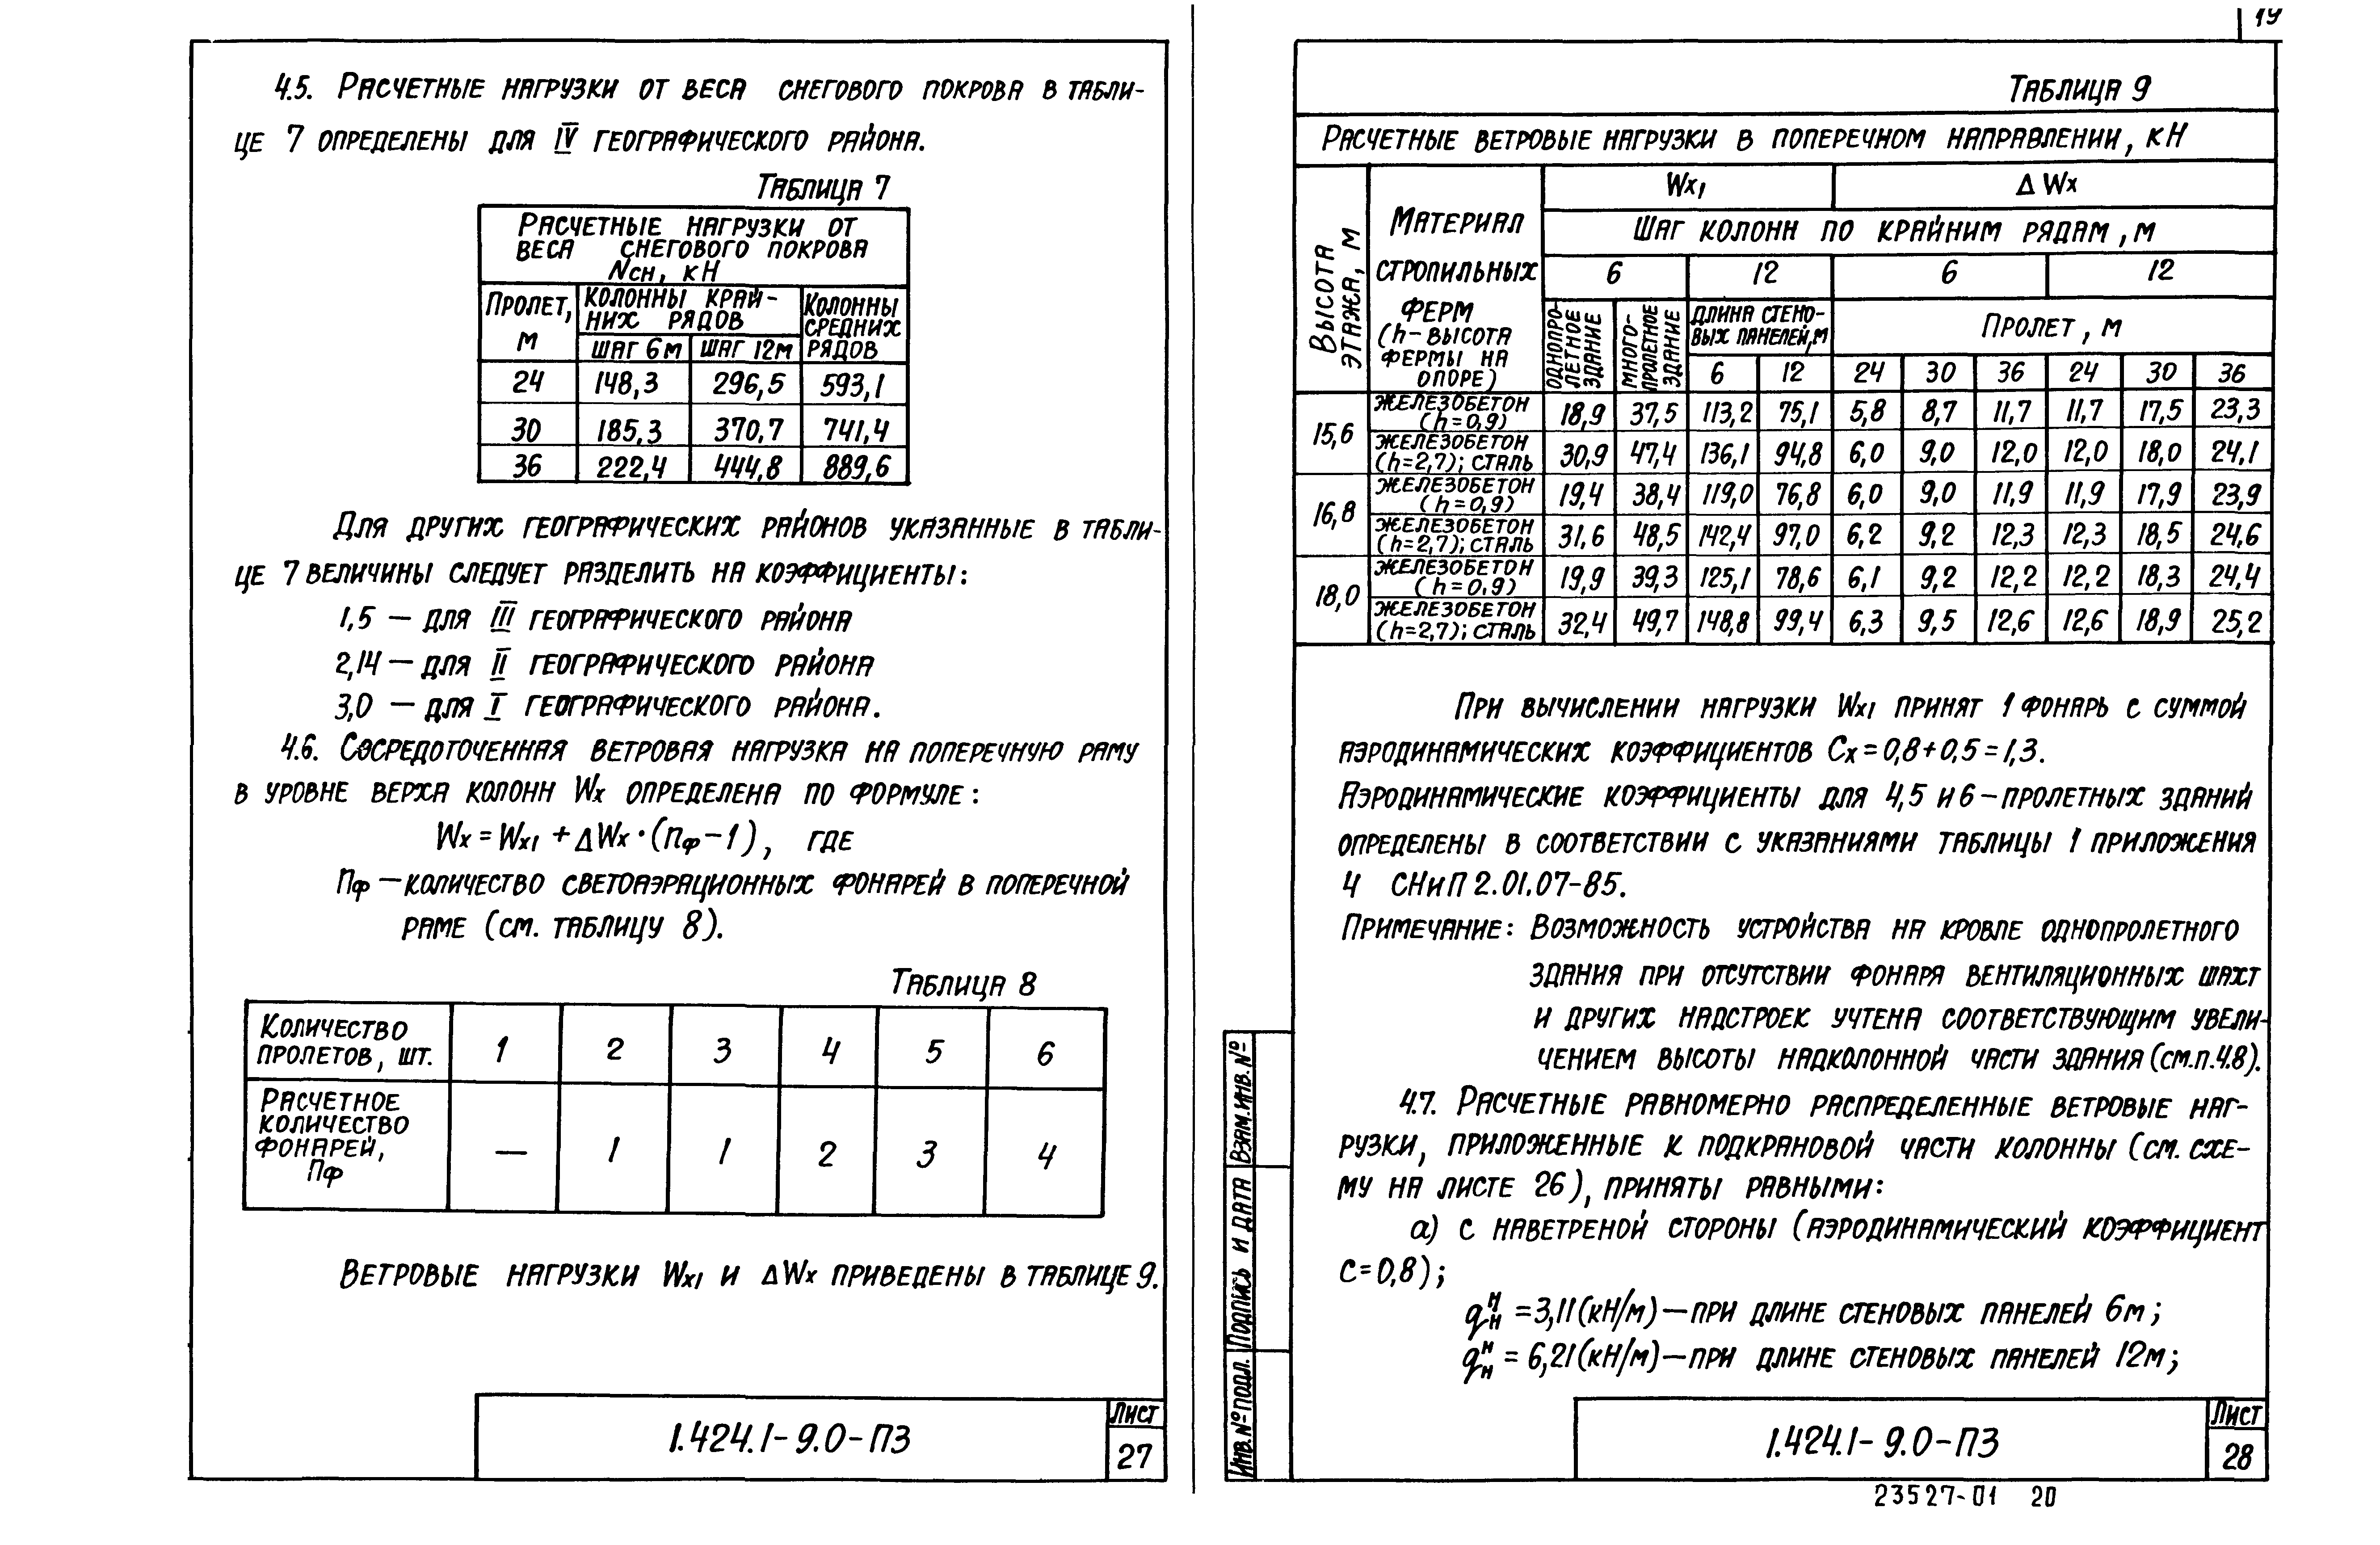 4.5. Расчетные нагрузки от веса снегового покрова в табли-
це 7 определены для IV географического района.
Таблица 7
Расчетные нагрузки от
веса снегового покрова
Nсн, кН
Пролет, м | Колонны край-них рядов | Колонны средних рядов
шаг 6м | шаг 12м
24 | 148,3 | 296,5 | 593,1
30 | 185,3 | 370,7 | 741,4
36 | 222,4 | 444,8 | 889,6
Для других географических районов указанные в табли-
це 7 величины следует разделить на коэффициенты:
1,5 — для III географического района
2,14 — для II географического района
3,0 — для I географического района.
4.6. Сосредоточенная ветровая нагрузка на поперечную раму
в уровне верха колонн Wx определена по формуле:
Wx = Wx1 + ΔWx · (nф – 1), где
nф — количество светоаэрационных фонарей в поперечной
раме (см. таблицу 8).
Таблица 8
Количество пролетов, шт. | 1 | 2 | 3 | 4 | 5 | 6
Расчетное количество фонарей, nф | — | 1 | 1 | 2 | 3 | 4
Ветровые нагрузки Wx1 и ΔWx приведены в таблице 9.
1.424.1-9.0-ПЗ
Лист
27
19
Таблица 9
Расчетные ветровые нагрузки в поперечном направлении, кН
Высота этажа, м | Материал стропильных ферм (h-высота фермы на опоре) | Wx1 | ΔWx
Шаг колонн по крайним рядам, м
6 | 12 | 6 | 12
Однопро-летное здание | Много-пролетное здание | Длина стено-вых панелей, м | Пролет, м
6 | 12 | 24 | 30 | 36 | 24 | 30 | 36
15,6 | железобетон (h=0,9) | 18,9 | 37,5 | 113,2 | 75,1 | 5,8 | 8,7 | 11,7 | 11,7 | 17,5 | 23,3
железобетон (h=2,7); сталь | 30,9 | 47,4 | 136,1 | 94,8 | 6,0 | 9,0 | 12,0 | 12,0 | 18,0 | 24,1
16,8 | железобетон (h=0,9) | 19,4 | 38,4 | 119,0 | 76,8 | 6,0 | 9,0 | 11,9 | 11,9 | 17,9 | 23,9
железобетон (h=2,7); сталь | 31,6 | 48,5 | 142,4 | 97,0 | 6,2 | 9,2 | 12,3 | 12,3 | 18,5 | 24,6
18,0 | железобетон (h=0,9) | 19,9 | 39,3 | 125,1 | 78,6 | 6,1 | 9,2 | 12,2 | 12,2 | 18,3 | 24,4
железобетон (h=2,7); сталь | 32,4 | 49,7 | 148,8 | 99,4 | 6,3 | 9,5 | 12,6 | 12,6 | 18,9 | 25,2
При вычислении нагрузки Wx1 принят 1 фонарь с суммой
аэродинамических коэффициентов Cx = 0,8 + 0,5 = 1,3.
Аэродинамические коэффициенты для 4,5 и 6 – пролетных зданий
определены в соответствии с указаниями таблицы 1 приложения
4 СНиП 2.01.07-85.
Примечание: Возможность устройства на кровле однопролетного
здания при отсутствии фонаря вентиляционных шахт
и других надстроек учтена соответствующим увели-
чением высоты надколонной части здания (см.п.4.8).
4.7. Расчетные равномерно распределенные ветровые наг-
рузки, приложенные к подкрановой части колонны (см. схе-
му на листе 26), приняты равными:
а) с наветреной стороны (аэродинамический коэффициент
с=0,8);
qнн = 3,11(кН/м) — при длине стеновых панелей 6м;
qнн = 6,21(кН/м) — при длине стеновых панелей 12м;
Инв.№подл. Подпись и дата Взам.инв.№
1.424.1-9.0-ПЗ
Лист
28
23527-01 20